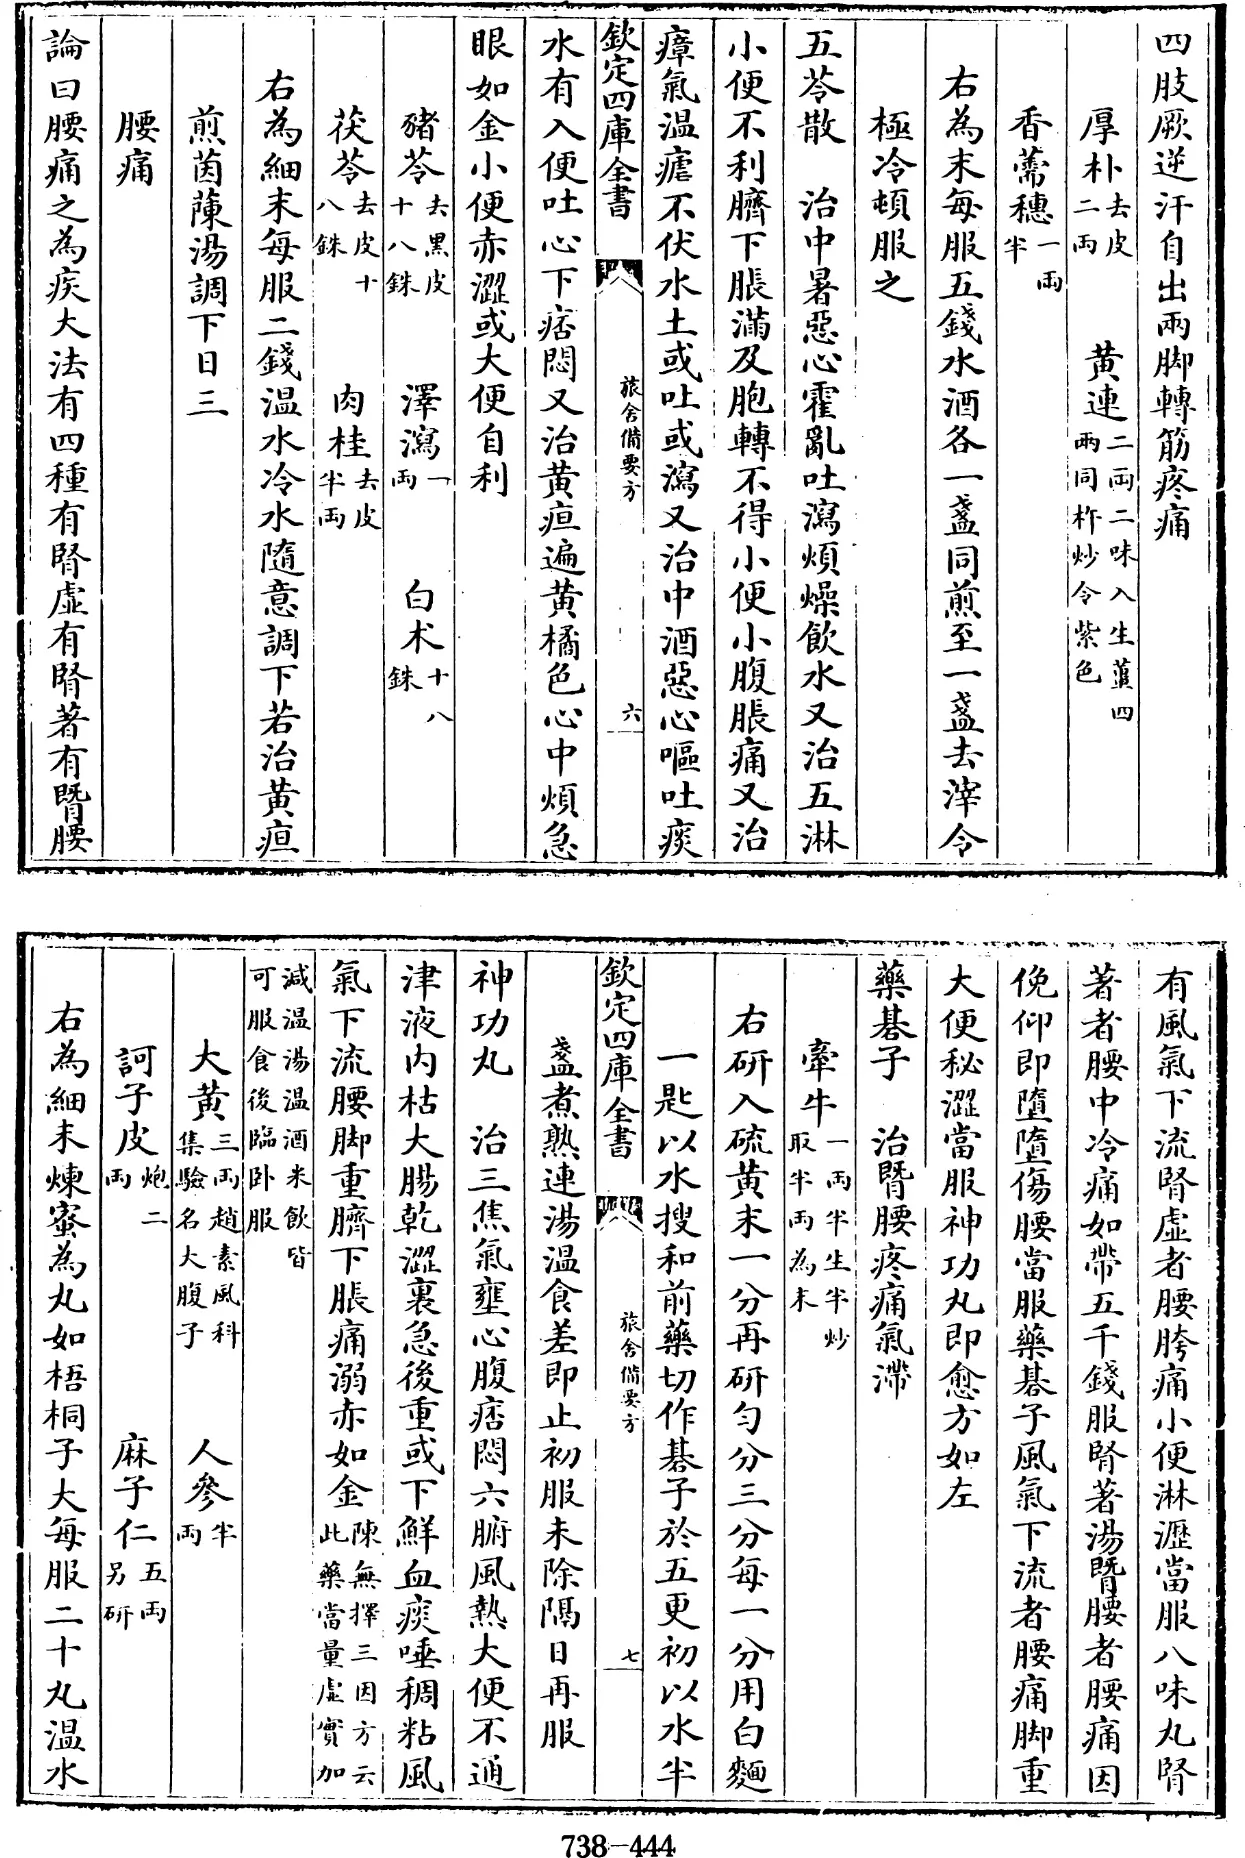 四肢厥逆汗自出兩脚轉筋疼痛
厚朴去皮二兩 黄連二兩二味入生薑四兩同杵炒令紫色
香薷穗一兩半
右為末每服五錢水酒各一盞同煎至一盞去滓令
極冷頓服之
五苓散 治中暑惡心霍亂吐瀉煩燥飲水又治五淋
小便不利臍下脹滿及胞轉不得小便小腹脹痛又治
瘴氣温瘧不伏水土或吐或瀉又治中酒惡心嘔吐痰
欽定四庫全書 旅舍備要方 六
水有入便吐心下痞悶又治黄疸遍黄橘色心中煩急
眼如金小便赤澀或大便自利
豬苓去黑皮十八銖 澤瀉一兩 白术十八銖
茯苓去皮十八銖 肉桂去皮半兩
右為細末每服二錢温水冷水隨意調下若治黄疸
煎茵蔯湯調下日三
腰痛
論曰腰痛之為疾大法有四種有腎虛有腎著有䐿腰
有風氣下流腎虛者腰胯痛小便淋瀝當服八味丸腎
著者腰中冷痛如帶五千錢服腎著湯䐿腰者腰痛因
俛仰即墮墮傷腰當服藥碁子風氣下流者腰痛脚重
大便秘澀當服神功丸即愈方如左
藥碁子 治䐿腰疼痛氣滯
牽牛一兩半生半炒取半兩為末
右研入硫黄末一分再研勻分三分每一分用白麵
一匙以水搜和前藥切作碁子於五更初以水半
欽定四庫全書 旅舍備要方 七
盞煮熟連湯温食差即止初服未除隔日再服
神功丸 治三焦氣壅心腹痞悶六腑風熱大便不通
津液内枯大腸乾澀裏急後重或下鮮血痰唾稠粘風
氣下流腰脚重臍下脹痛溺赤如金陳無擇三因方云此藥當量虛實加
減温湯温酒米飲皆可服食後臨卧服
大黄三兩趙素風科集驗名大腹子 人參半兩
訶子皮炮二兩 麻子仁五兩另研
右為細末煉蜜為丸如梧桐子大每服二十丸温水
738-444